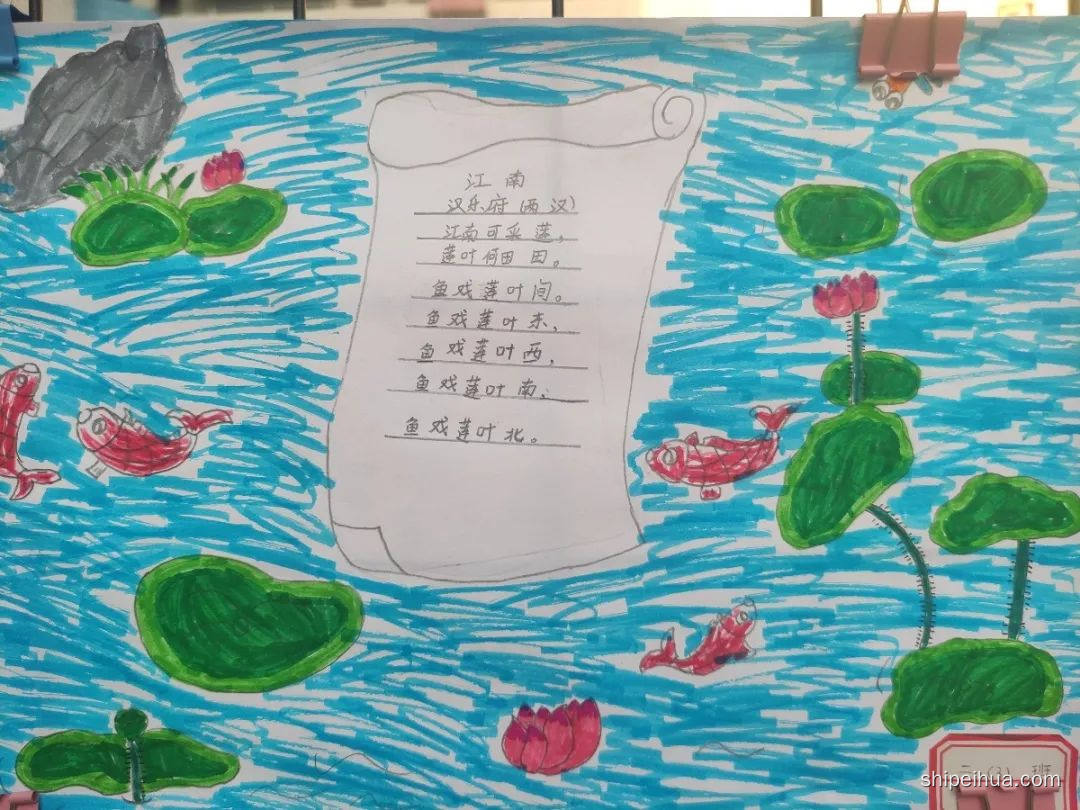 江南
汉乐府(西汉)
江南可采莲,
莲叶何田田。
鱼戏莲叶间。
鱼戏莲叶东,
鱼戏莲叶西,
鱼戏莲叶南;
鱼戏莲叶北。
班
shipeihua.com